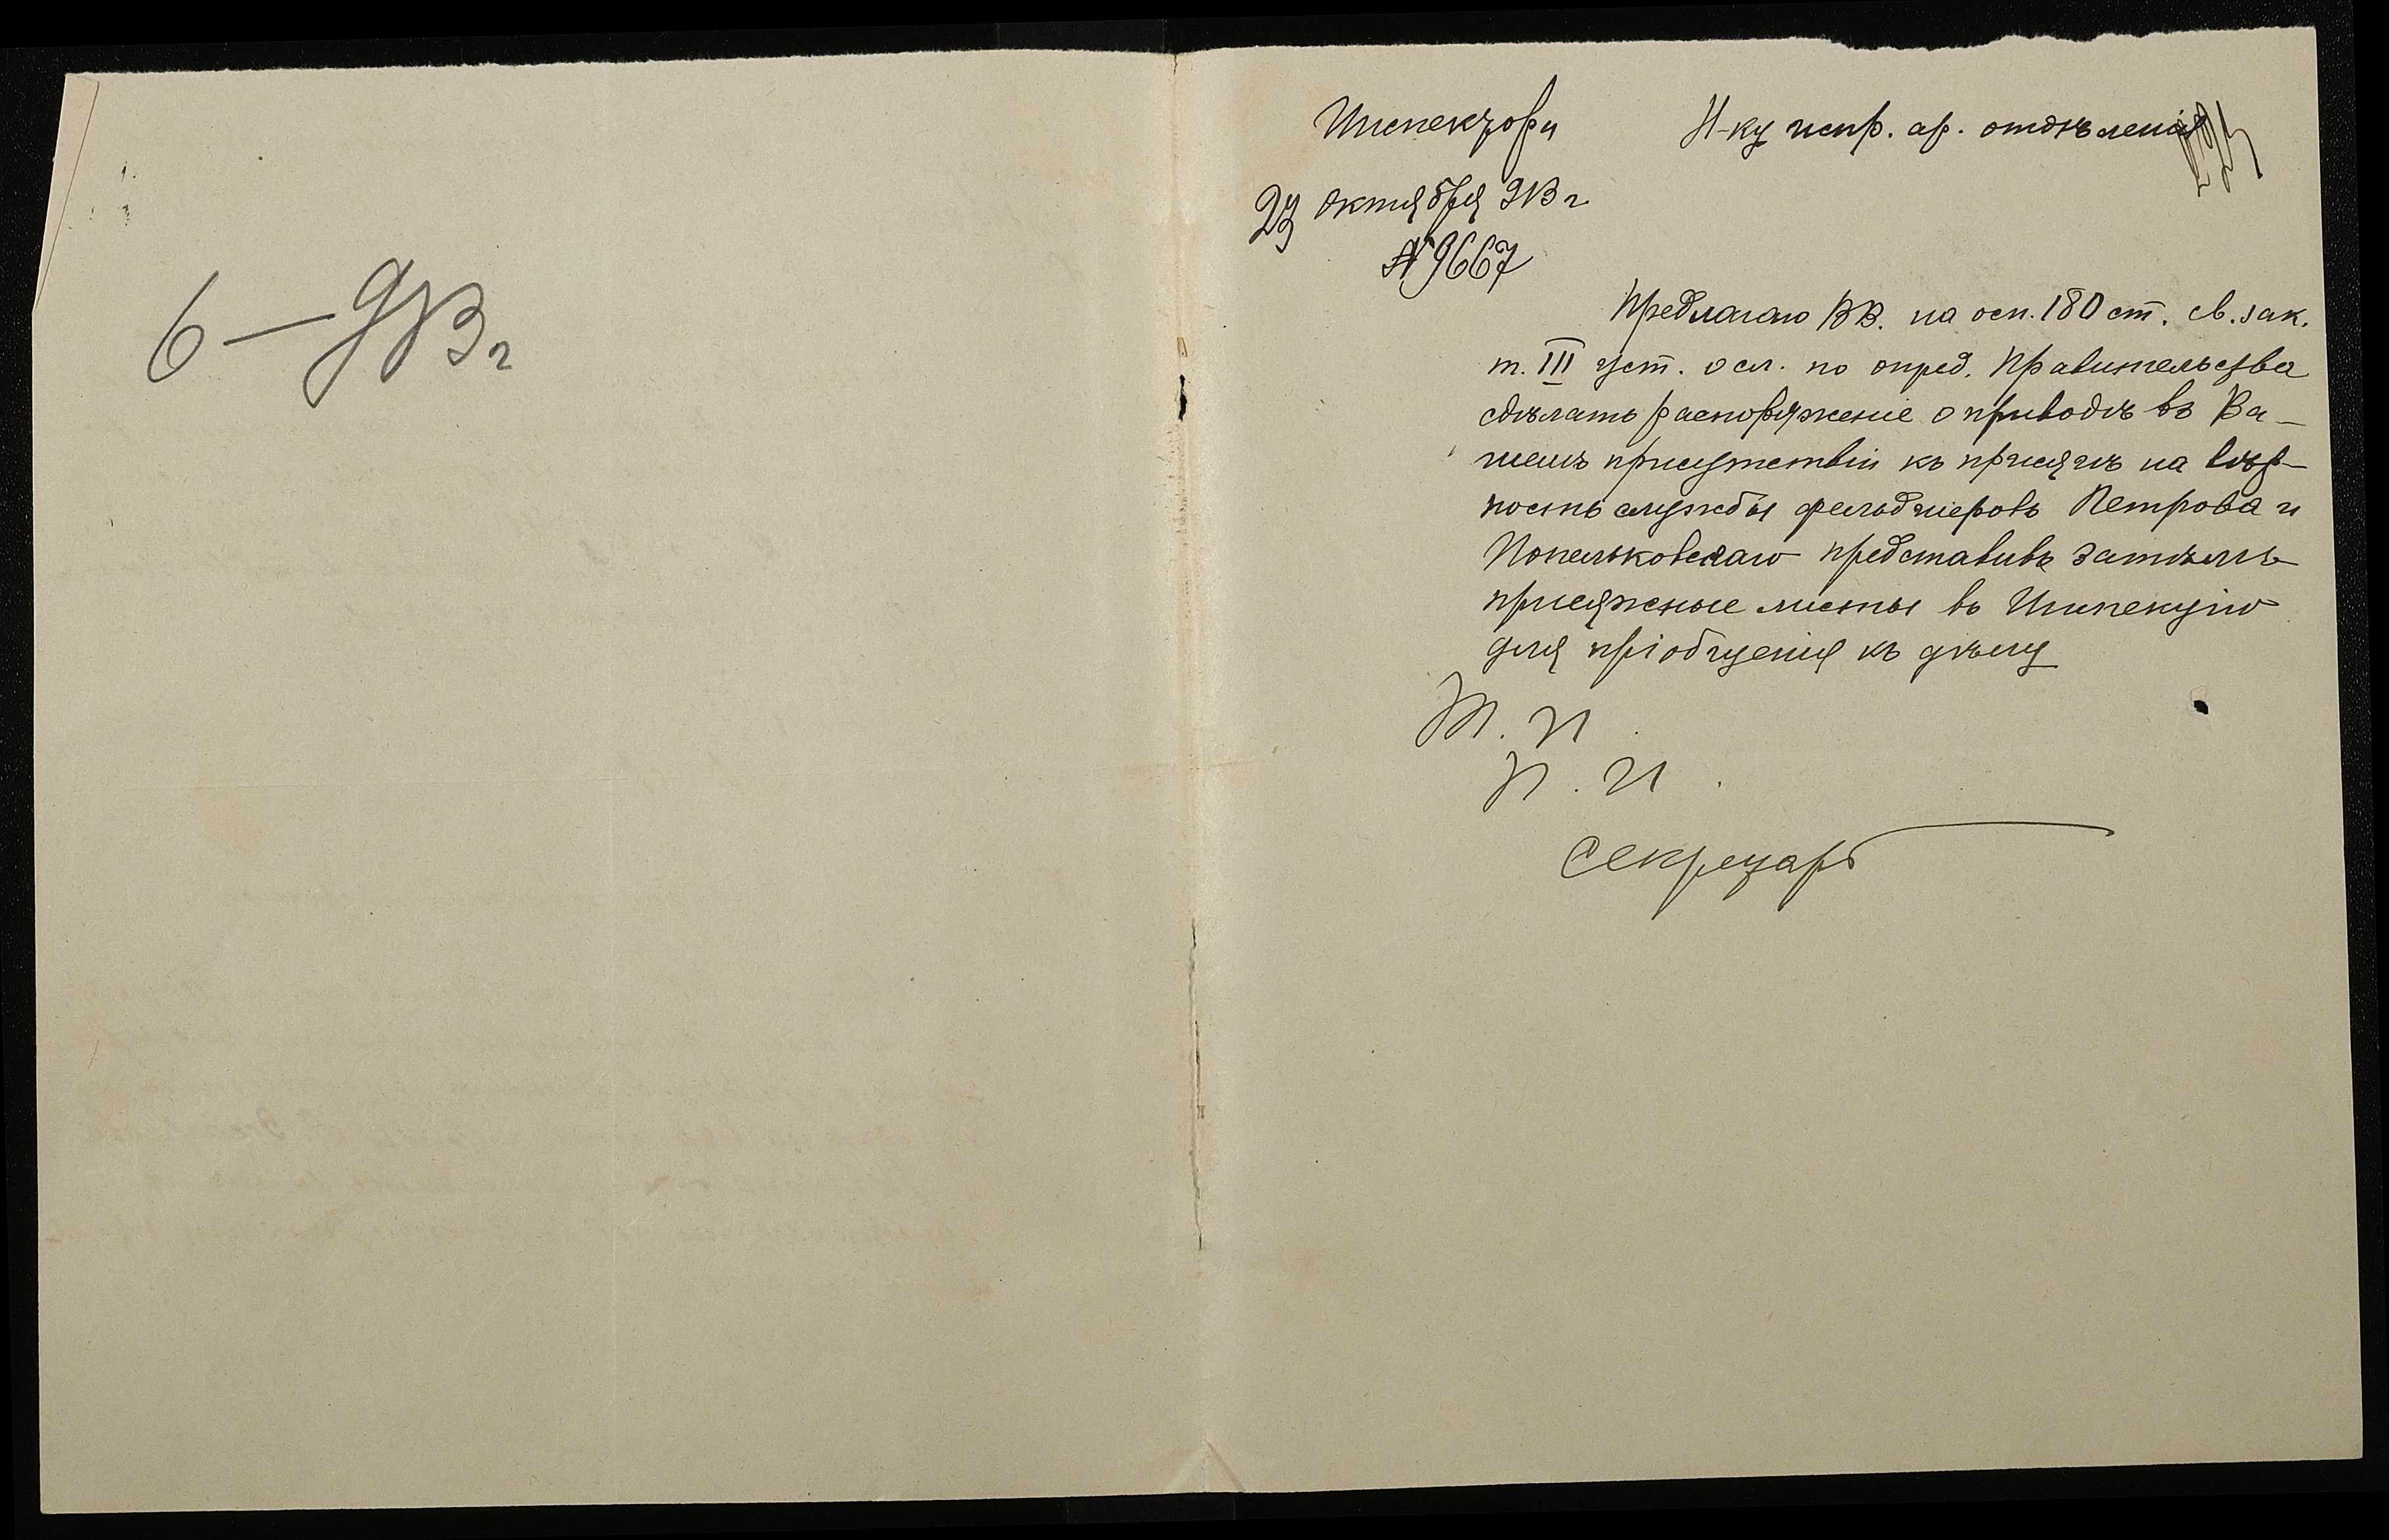 6 — 913 г
Инспектору
Н-ку испр. ар. отдѣленія
23 октября 913 г
№ 9667
Предлагаю ВВ. на осн. 180 ст. св. зак.
т. III уст. о сл. по опред. Правительства
сдѣлать распоряженіе о приводѣ въ Ва-
шемъ присутствіи къ присягѣ на вѣр-
ность службы фельдшеровъ Петрова и
представивъ затѣмъ
присяжные листы въ Инспекцію
для пріобщенія къ дѣлу
Т. И.
П. И.
Секретарь